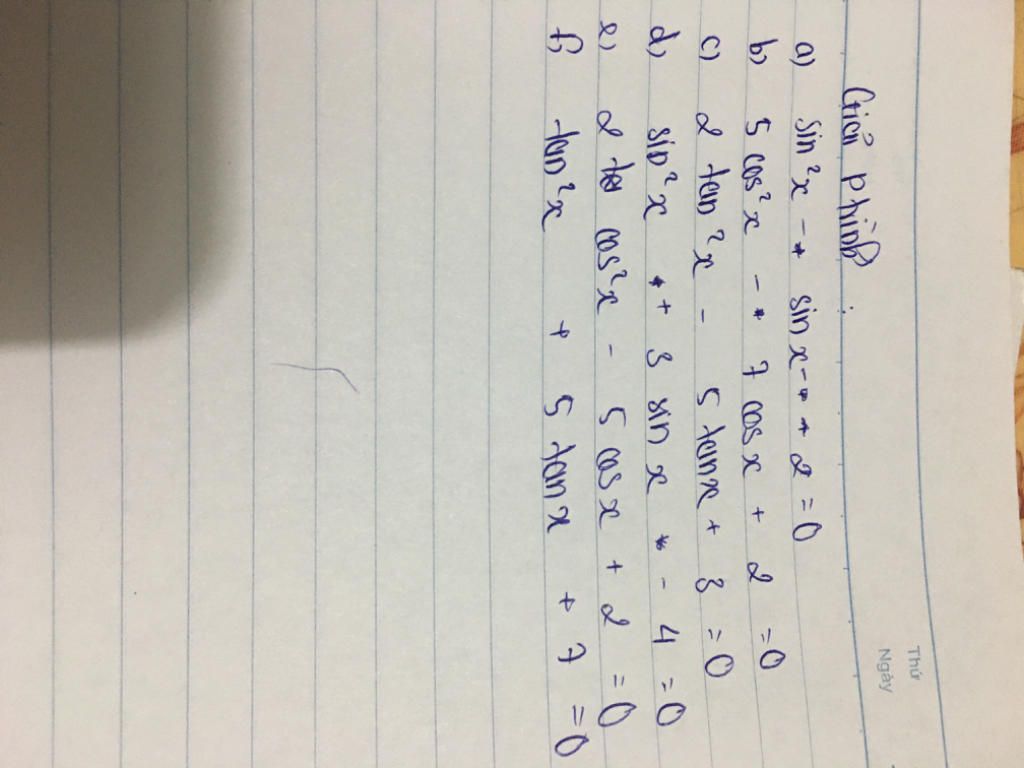 Thứ
Ngày
Giải phình :
a) sin²x - sin x - 2 = 0
b) 5 cos²x - 7 cos x + 2 = 0
c) 2 tan²x - 5 tan x + 3 = 0
d) sin²x + 3 sin x - 4 = 0
e) 2 cos²x - 5 cos x + 2 = 0
f) tan²x + 5 tan x + 7 = 0